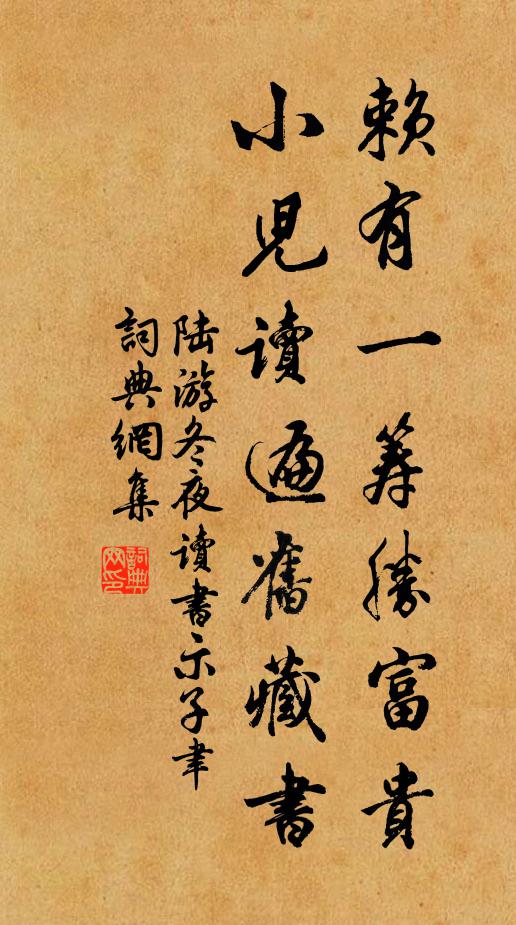 賴有一筹勝富貴
小兒读遍舊藏書
陆游冬夜读書示子聿
詞典網集
詞典網印